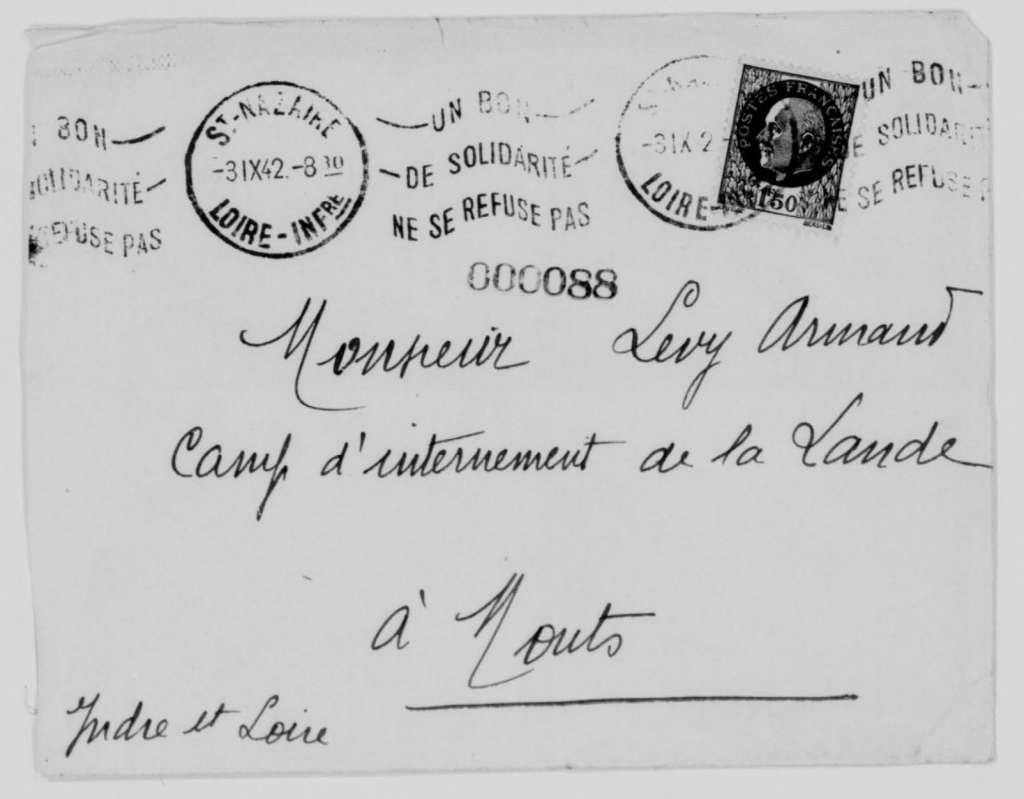 BON
SOLIDARITÉ
REFUSE PAS
ST-NAZAIRE
-3 IX 42.-8 30
LOIRE-INFRE
UN BON
DE SOLIDARITÉ
NE SE REFUSE PAS
-3 IX
LOIRE-
POSTES FRANÇAISES
1F50
UN BON
DE SOLIDARITÉ
NE SE REFUSE P
000088
Monsieur Levy Armand
Camp d'internement de la Lande
à Monts
Indre et Loire